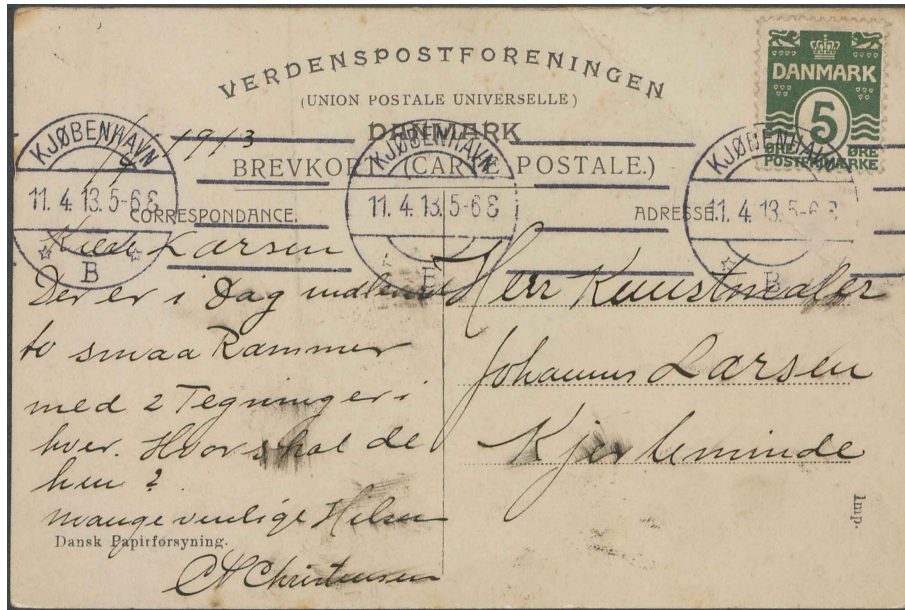 VERDENSPOSTFORENINGEN
(UNION POSTALE UNIVERSELLE)
DANMARK
BREVKORT (CARTE POSTALE.)
DANMARK
5
ØRE ØRE
POSTFRIMÆRKE
KJØBENHAVN
11. 4. 13. 5-6 E
B
KJØBENHAVN
11. 4. 13. 5-6 E
KJØBENHAVN
11. 4. 13. 5-6 E
B
1913
CORRESPONDANCE.
Kære Larsen
Der er i Dag indleveret
to smaa Rammer
med 2 Tegninger i
hver. Hvor skal de
hen?
mange venlige Hilsen
CA Christensen
Dansk Papirforsyning.
ADRESSE.
Herr Kunstmaler
Johannes Larsen
Kjerteminde
Imp.